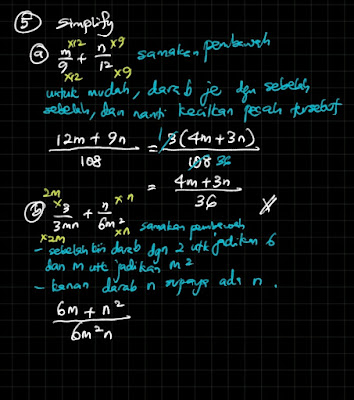 ⑤ Simplify
ⓐ m/9 + n/12 samakan pembawah
×12 ×9
×12 ×9
untuk mudah, darab je dgn sebelah
sebelah, dan nanti kecilkan pecah tersebut
(12m + 9n)/108 = 1 3(4m + 3n)/108 36
= (4m + 3n)/36
ⓑ 3/3mn + n/6m² samakan pembawah
2m × n
×2m ×n
- sebelah kiri darab dgn 2 utk jadikan 6
dan m utk jadikan m²
- kanan darab n supaya ada n.
(6m + n²)/6m²n